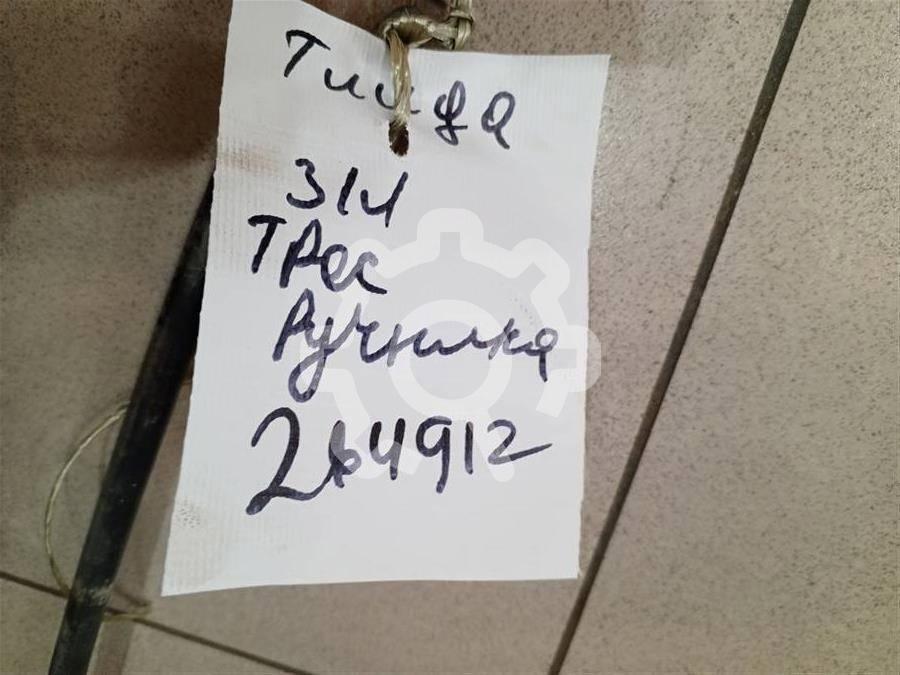 Тиида
314
Трос
Ручника
264912